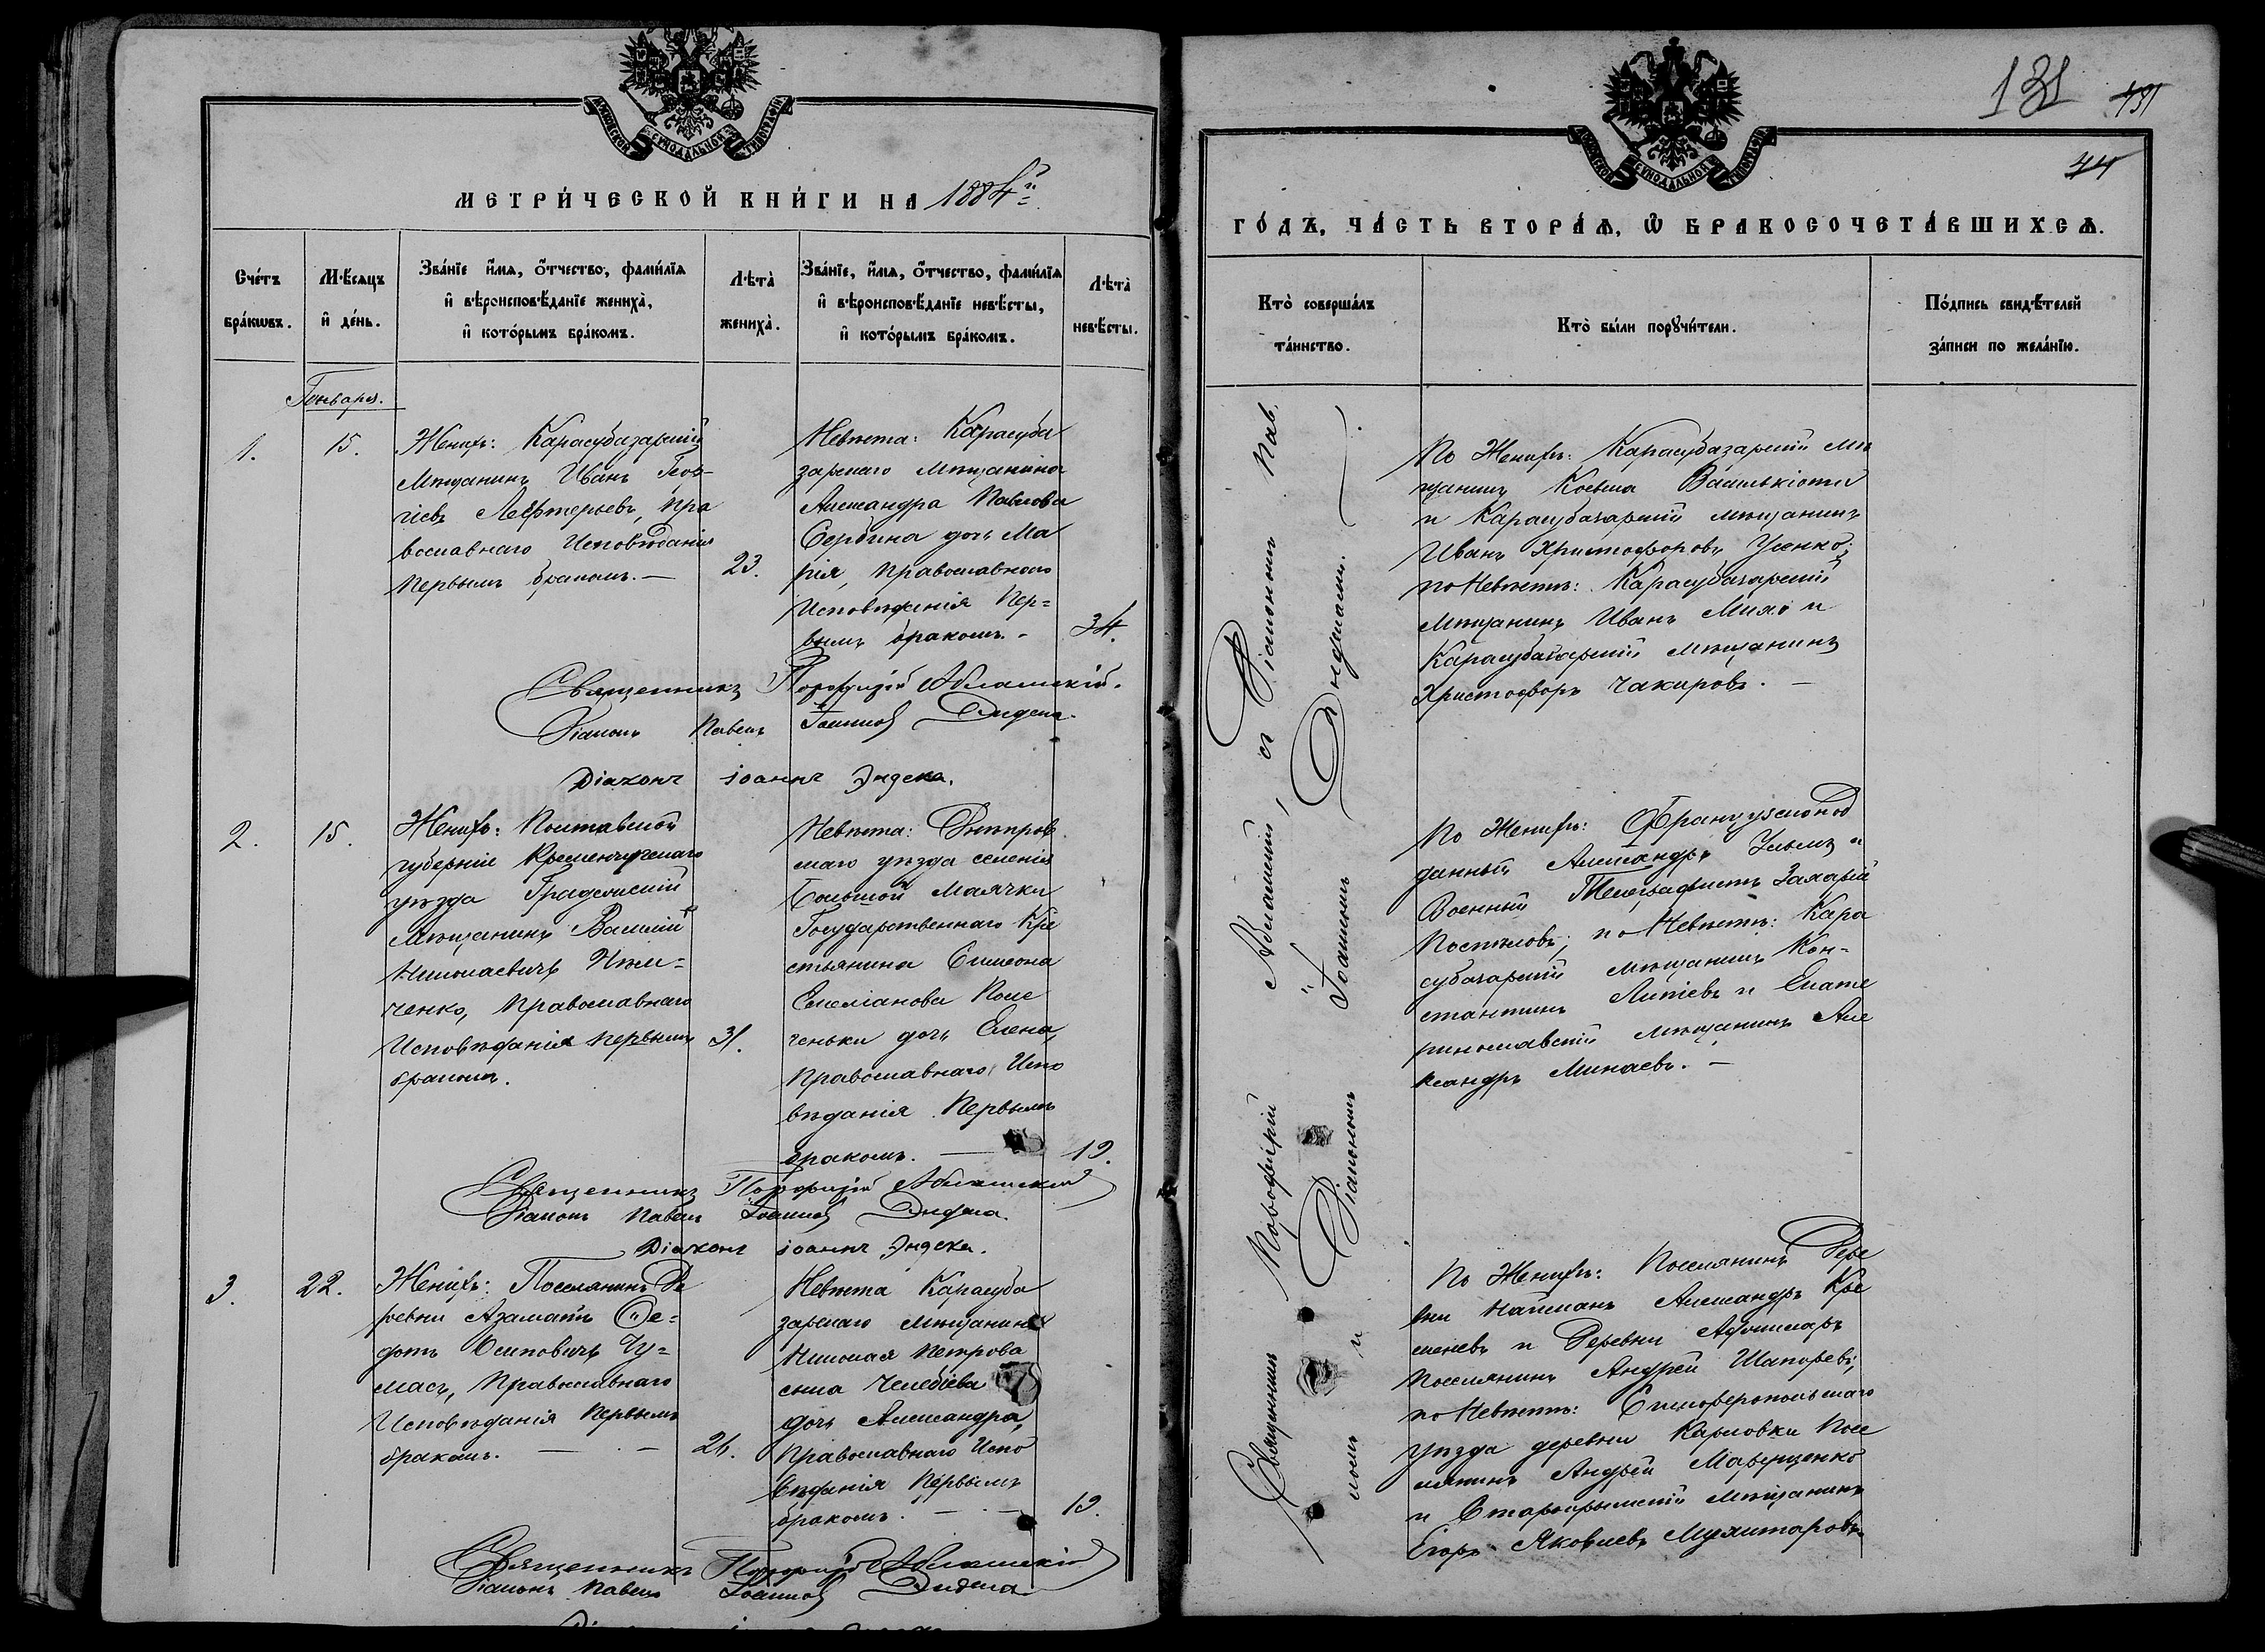 МОСКОВСКОЙ СѴНОДАЛЬНОЙ ТИПОГРАФІИ
МЕТРИ́ЧЕСКОЙ КНИ́ГИ НА 1884й
Сче́тъ бра́кѡвъ.
Мѣ́сѧцъ и҆ де́нь.
Зва́нїе и҆́мѧ, ѻ҆́тчество, фами́лїѧ
и҆ вѣроисповѣ́данїе жениха̀,
и҆ кото́рымъ бра́комъ.
Лѣта̀ жениха̀.
Зва́нїе, и҆́мѧ, ѻ҆́тчество, фами́лїѧ
и҆ вѣроисповѣ́данїе невѣ́сты,
и҆ кото́рымъ бра́комъ.
Лѣта̀ невѣ́сты.
Генваря.
1.
15.
Женихъ: Карасубазарскій
Мѣщанинъ Иванъ Геор-
гіевъ Лефтерьевъ, Пра
вославнаго Исповѣданія
Первымъ бракомъ. —
23.
Невѣста: Карасуба
зарскаго Мѣщанина
Александра Павлова
Сербина дочь Ма
рія, Православнаго
Исповѣданія Пер=
вымъ бракомъ. -
34.
Священникъ Порфирій
Діаконъ Павелъ Іоанновъ Эндека.
Діаконъ іоаннъ Эндека.
2.
15.
Женихъ: Полтавской
губерніи Кременчугскаго
уѣзда Градижскій
Мѣщанинъ Василій
Николаевичъ
ченко, Православнаго
Исповѣданія Первымъ
бракомъ.
31.
Невѣста: Днѣпров
скаго уѣзда селенія
Большой Маячки
Государственнаго Кре
стьянина Симеона
Емеліанова Поле
геньки дочь Елена,
Православнаго Испо
вѣданія Первымъ
бракомъ. —
19.
Священникъ Порфирій
Діаконъ Павелъ Іоанновъ Эндека.
Діаконъ іоаннъ Эндека.
3.
22.
Женихъ: Поселянинъ Де
ревни Азаматъ Ѳе=
дотъ Осиповичъ Чу=
масъ, Православнаго
Исповѣданія Первымъ
бракомъ. — —
Невѣста Карасуба
зарскаго мѣщанина
Николая Петрова
сына Челебіева
дочь Александра,
Православнаго Испо
вѣданія Первымъ
бракомъ. — —
19.
Священникъ Порфирій
Діаконъ Павелъ Іоанновъ Эндека
131
МОСКОВСКОЙ СѴНОДАЛЬНОЙ ТИПОГРАФІИ
44
ГО́ДЪ, ЧА́СТЬ ВТОРА́Ѧ, Ѡ҆ БРАКОСОЧЕТА́ВШИХСѦ.
Кто̀ соверша́лъ та́инство.
Кто̀ бы́ли порꙋчи́тели.
По́дпись свидѣ́телей
за́писи по жела́нїю.
Священникъ Порфирій, съ Діакономъ Пав.
ломъ и Діакономъ Іоанномъ Эндеками. —
По Женихѣ: Карасубазарскій Мѣ
щанинъ Косьма
и Карасубазарскій мѣщанинъ
Иванъ Христофоровъ Усенко;
по Невѣстѣ: Карасубазарскій
Мѣщанинъ Иванъ и
Карасубазарскій мѣщанинъ
Христофоръ Чакировъ. —
По Женихѣ: Французскопод
данный Александръ и
Военный Телеграфистъ Захарій
Поспѣловъ; по Невѣстѣ: Кара
субазарскій мѣщанинъ Кон-
стантинъ и Екате
ринославскій мѣщанинъ Але
ксандръ Минаевъ. —
По Женихѣ: Поселянинъ Дере
вни Найманъ Александръ Кре
меневъ и Деревни
поселянинъ Андрей Шапоревъ;
по Невѣстѣ: Симферопольскаго
уѣзда деревни Карловки Посе
лянинъ Андрей
и Старокрымскій Мѣщанинъ
Егоръ Яковлевъ